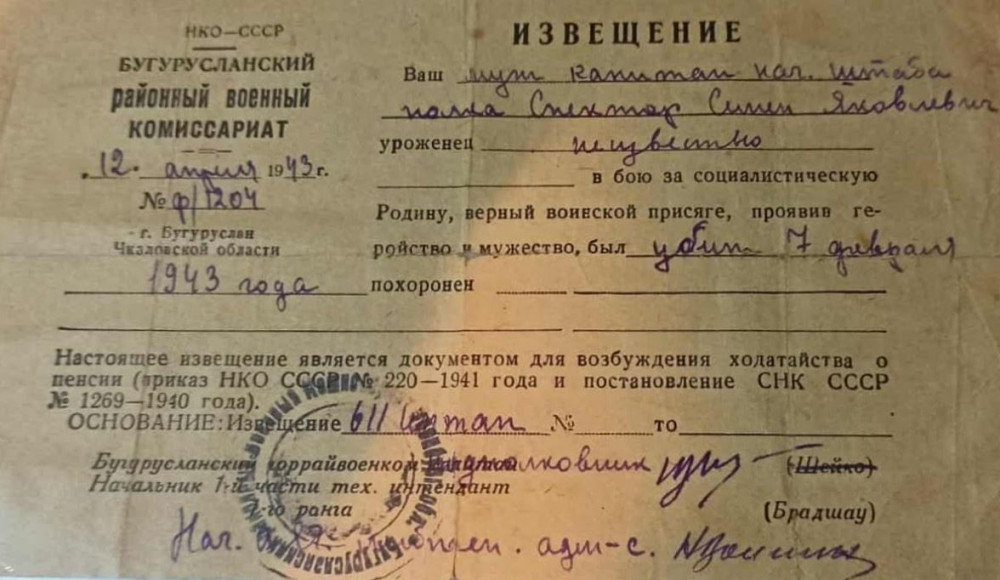 НКО—СССР
БУГУРУСЛАНСКИЙ
РАЙОННЫЙ ВОЕННЫЙ
КОМИССАРИАТ
12. апреля 1943 г.
№ ф/1204
г. Бугуруслан
Чкаловской области
ИЗВЕЩЕНИЕ
Ваш муж капитан нач. штаба
полка Спектор Семен Яковлевич
уроженец неизвестно
в бою за социалистическую
Родину, верный воинской присяге, проявив ге-
ройство и мужество, был убит 7 февраля
1943 года похоронен
Настоящее извещение является документом для возбуждения ходатайства о
пенсии (приказ НКО СССР № 220—1941 года и постановление СНК СССР
№ 1269—1940 года).
ОСНОВАНИЕ: Извещение № то
Бугурусланский горрайвоенком
Начальник 1-й части тех. интендант
ранга
(Шейко)
(Брадшау)
Нач. адм-с.